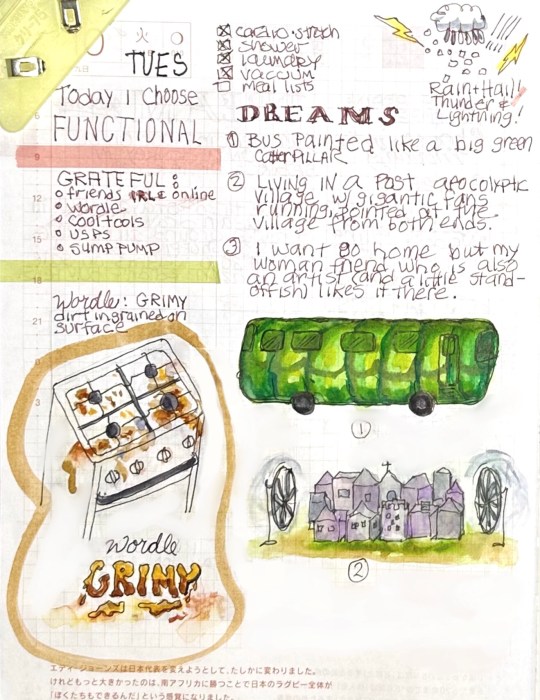 火
TUES
Today I choose
FUNCTIONAL
9
GRATEFUL:
friends IRL & online
12
wordle
cool tools
15
USPS
SUMP PUMP
18
Wordle: GRIMY
dirt ingrained on
21
surface
3
wordle
GRIMY
cardio · stretch
shower
laundry
vacuum
meal lists
Rain + Hail!
Thunder &
Lightning!
DREAMS
① BUS Painted like a big green
CaterPILLAR
② LIVING IN a Post apocolyptic
village w/ gigantic fans
running, pointed at the
village from both ends.
③ I want go home but my
woman friend, who is also
an artist (and a little stand-
offish) likes it there.
①
②
エディ・ジョーンズは日本代表を変えようとして、たしかに変わりました。
けれどもっと大きかったのは、南アフリカに勝つことで日本のラグビー全体が
「ぼくたちもできるんだ」という感覚になりました。